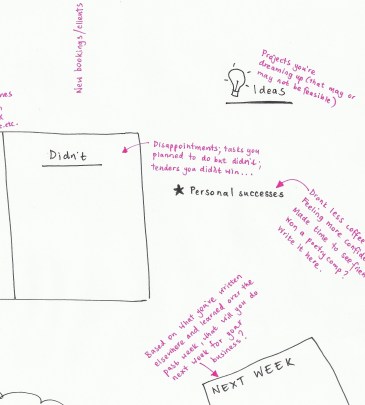 New bookings/clients
Projects you're
dreaming up (that may or
may not be feasible)
Ideas
Didn't
Disappointments; tasks you
planned to do but didn't;
tenders you didn't win...
Personal successes
Drank less coffee
Feeling more confid
Made time to see frien
Won a poetry comp?
Write it here.
Based on what you've written
elsewhere and learned over the
past week, what will you do
next week for your
business?
NEXT WEEK